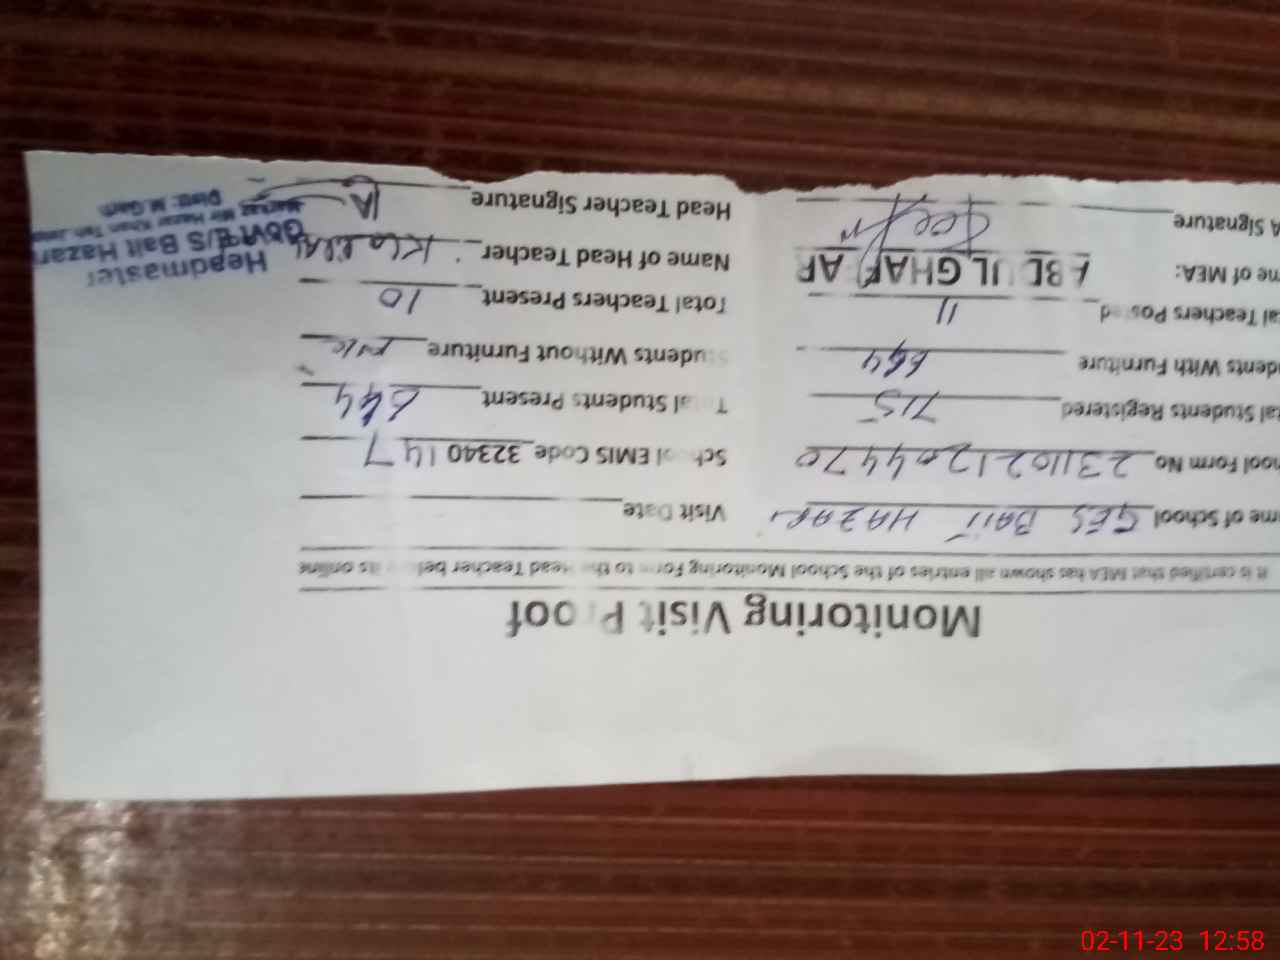 Monitoring Visit Proof
It is certified that MEA has shown all entries of the School Monitoring Form to the Head Teacher before its online
me of School GES BAIT HAZARI Visit Date
hool Form No 2311021204470 School EMIS Code 32340147
tal Students Registered 715 Total Students Present 644
dents With Furniture 644 Students Without Furniture
tal Teachers Posted 11 Total Teachers Present 10
me of MEA: ABDUL GHAFFAR Name of Head Teacher
A Signature Head Teacher Signature
Headmaster
Govt. E/S Bait Hazari
Markaz Mir Hazar Khan Teh
Distt: M. Garh
02-11-23 12:58